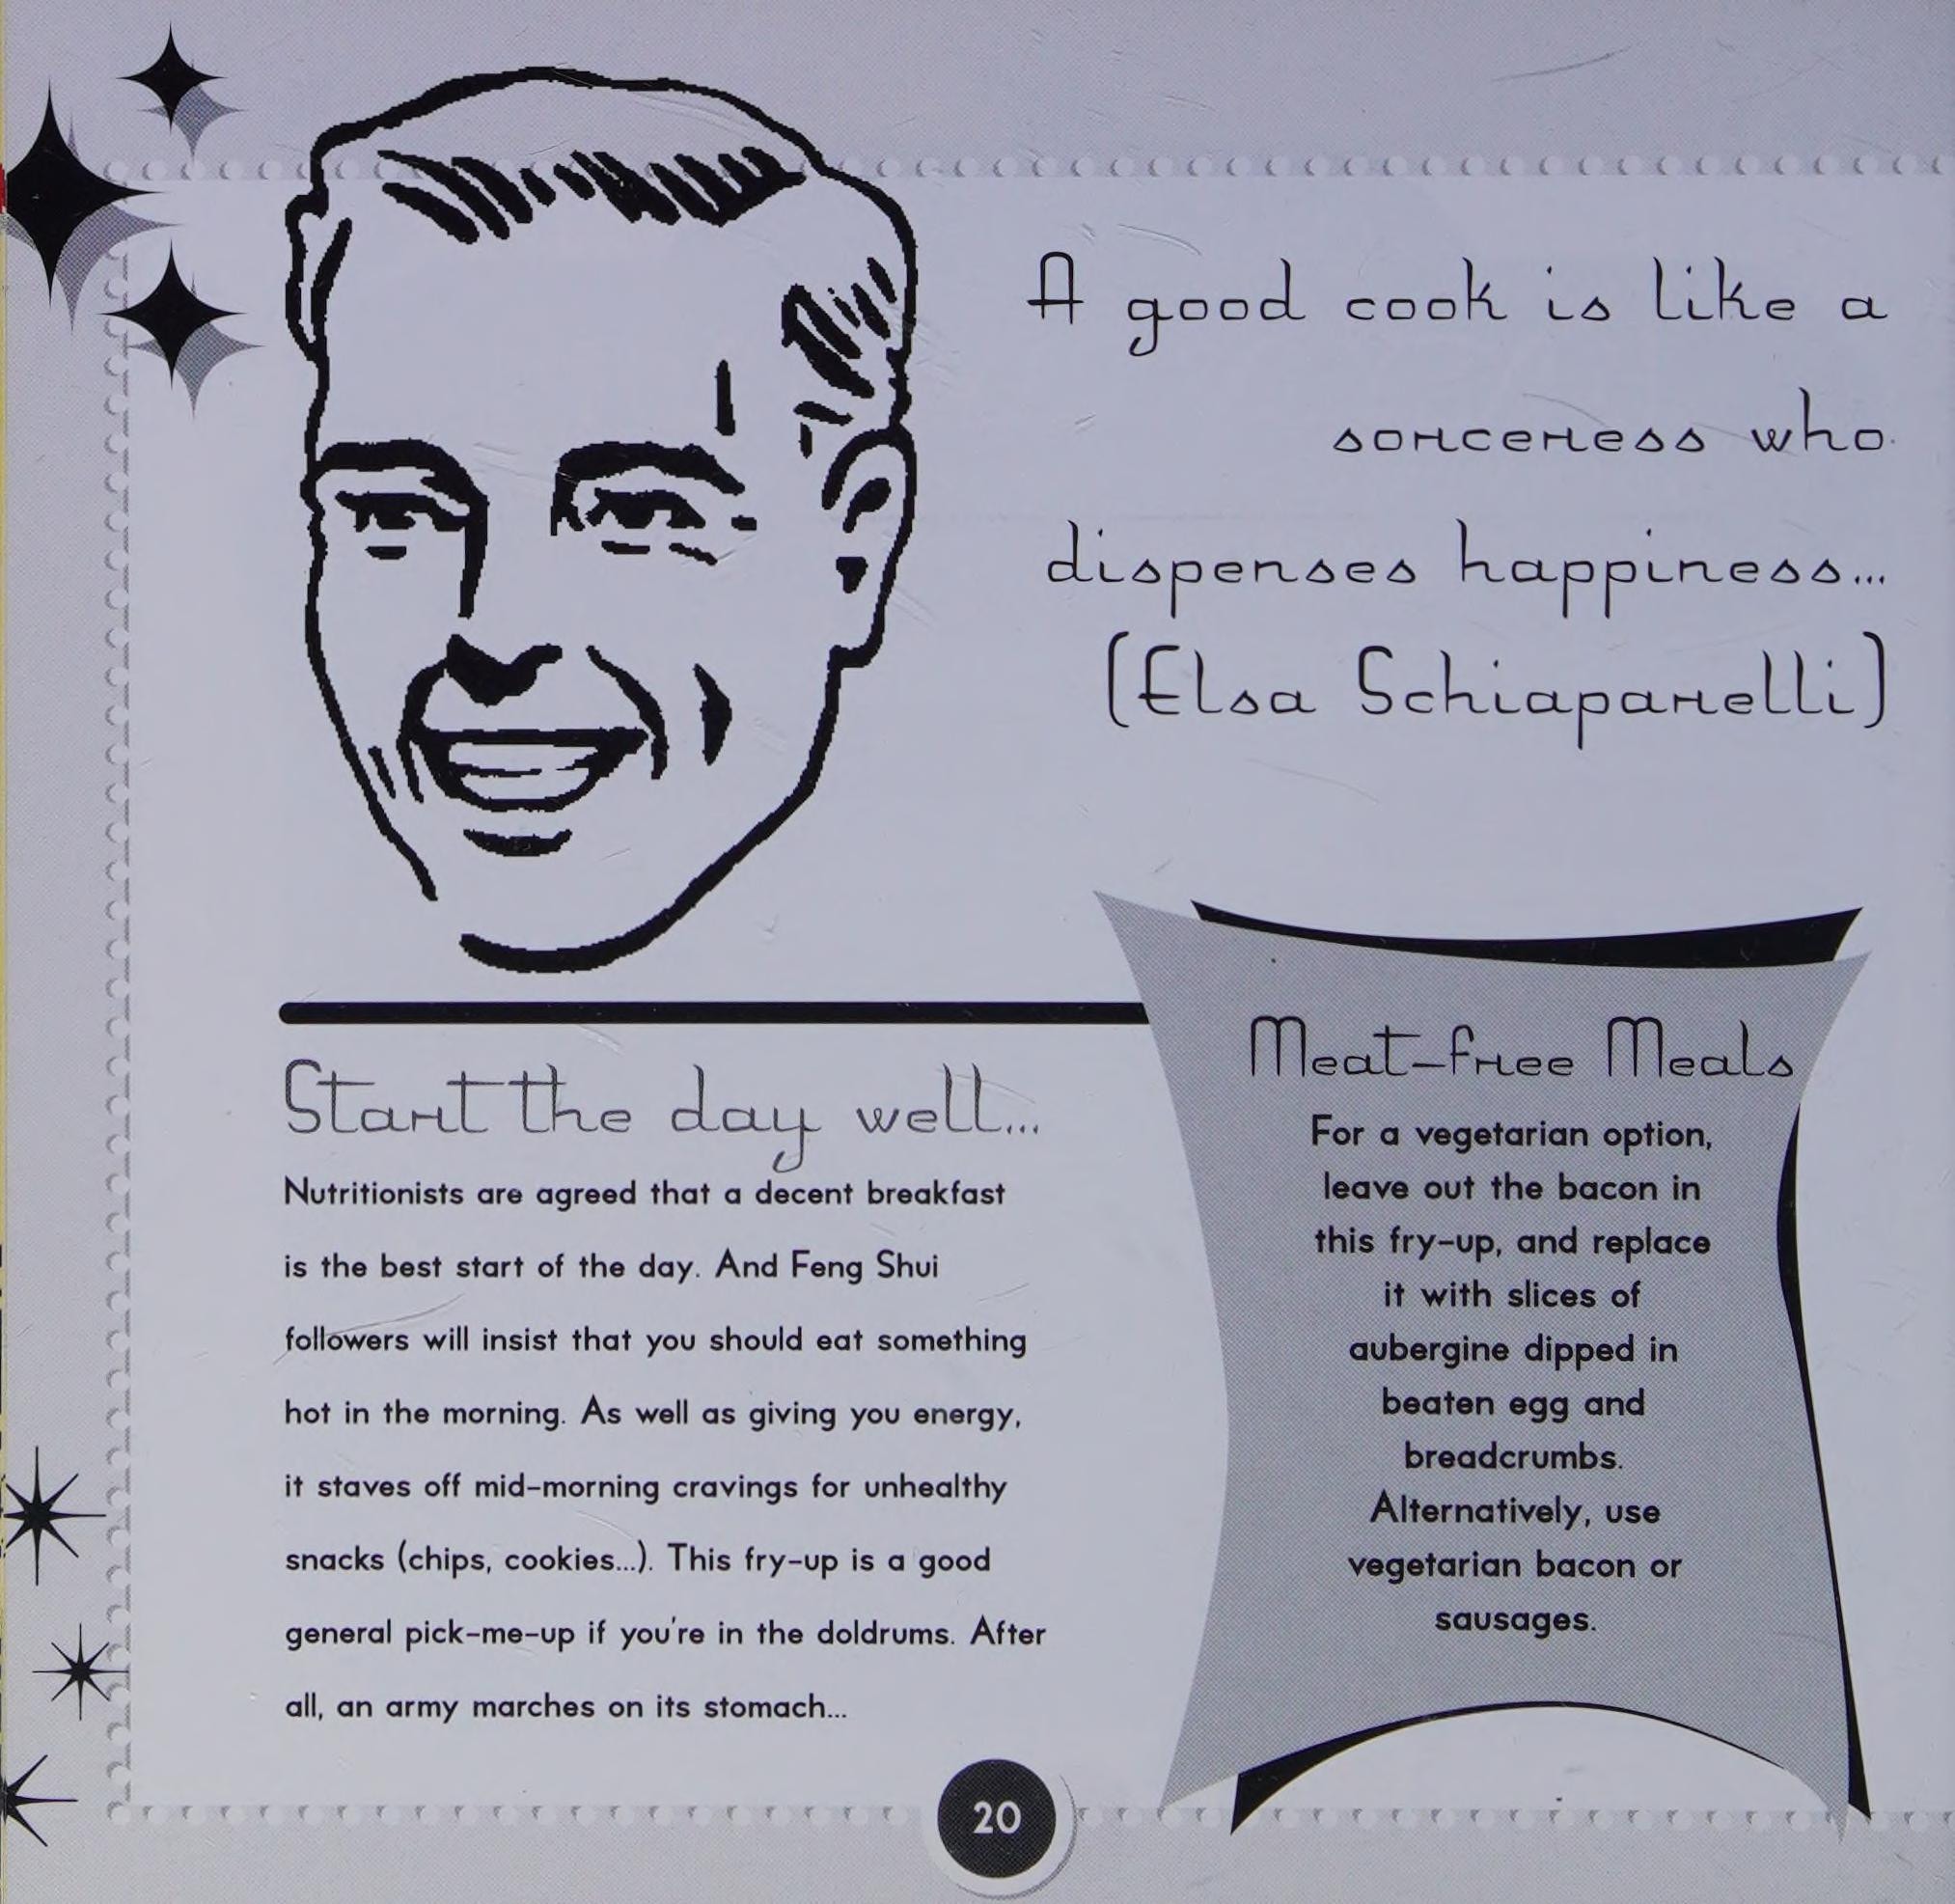 A good cook is like a
sorceress who
dispenses happiness...
(Elsa Schiaparelli)
Start the day well...
Nutritionists are agreed that a decent breakfast
is the best start of the day. And Feng Shui
followers will insist that you should eat something
hot in the morning. As well as giving you energy,
it staves off mid-morning cravings for unhealthy
snacks (chips, cookies...). This fry-up is a good
general pick-me-up if you're in the doldrums. After
all, an army marches on its stomach...
Meat-free Meals
For a vegetarian option,
leave out the bacon in
this fry-up, and replace
it with slices of
aubergine dipped in
beaten egg and
breadcrumbs.
Alternatively, use
vegetarian bacon or
sausages.
20